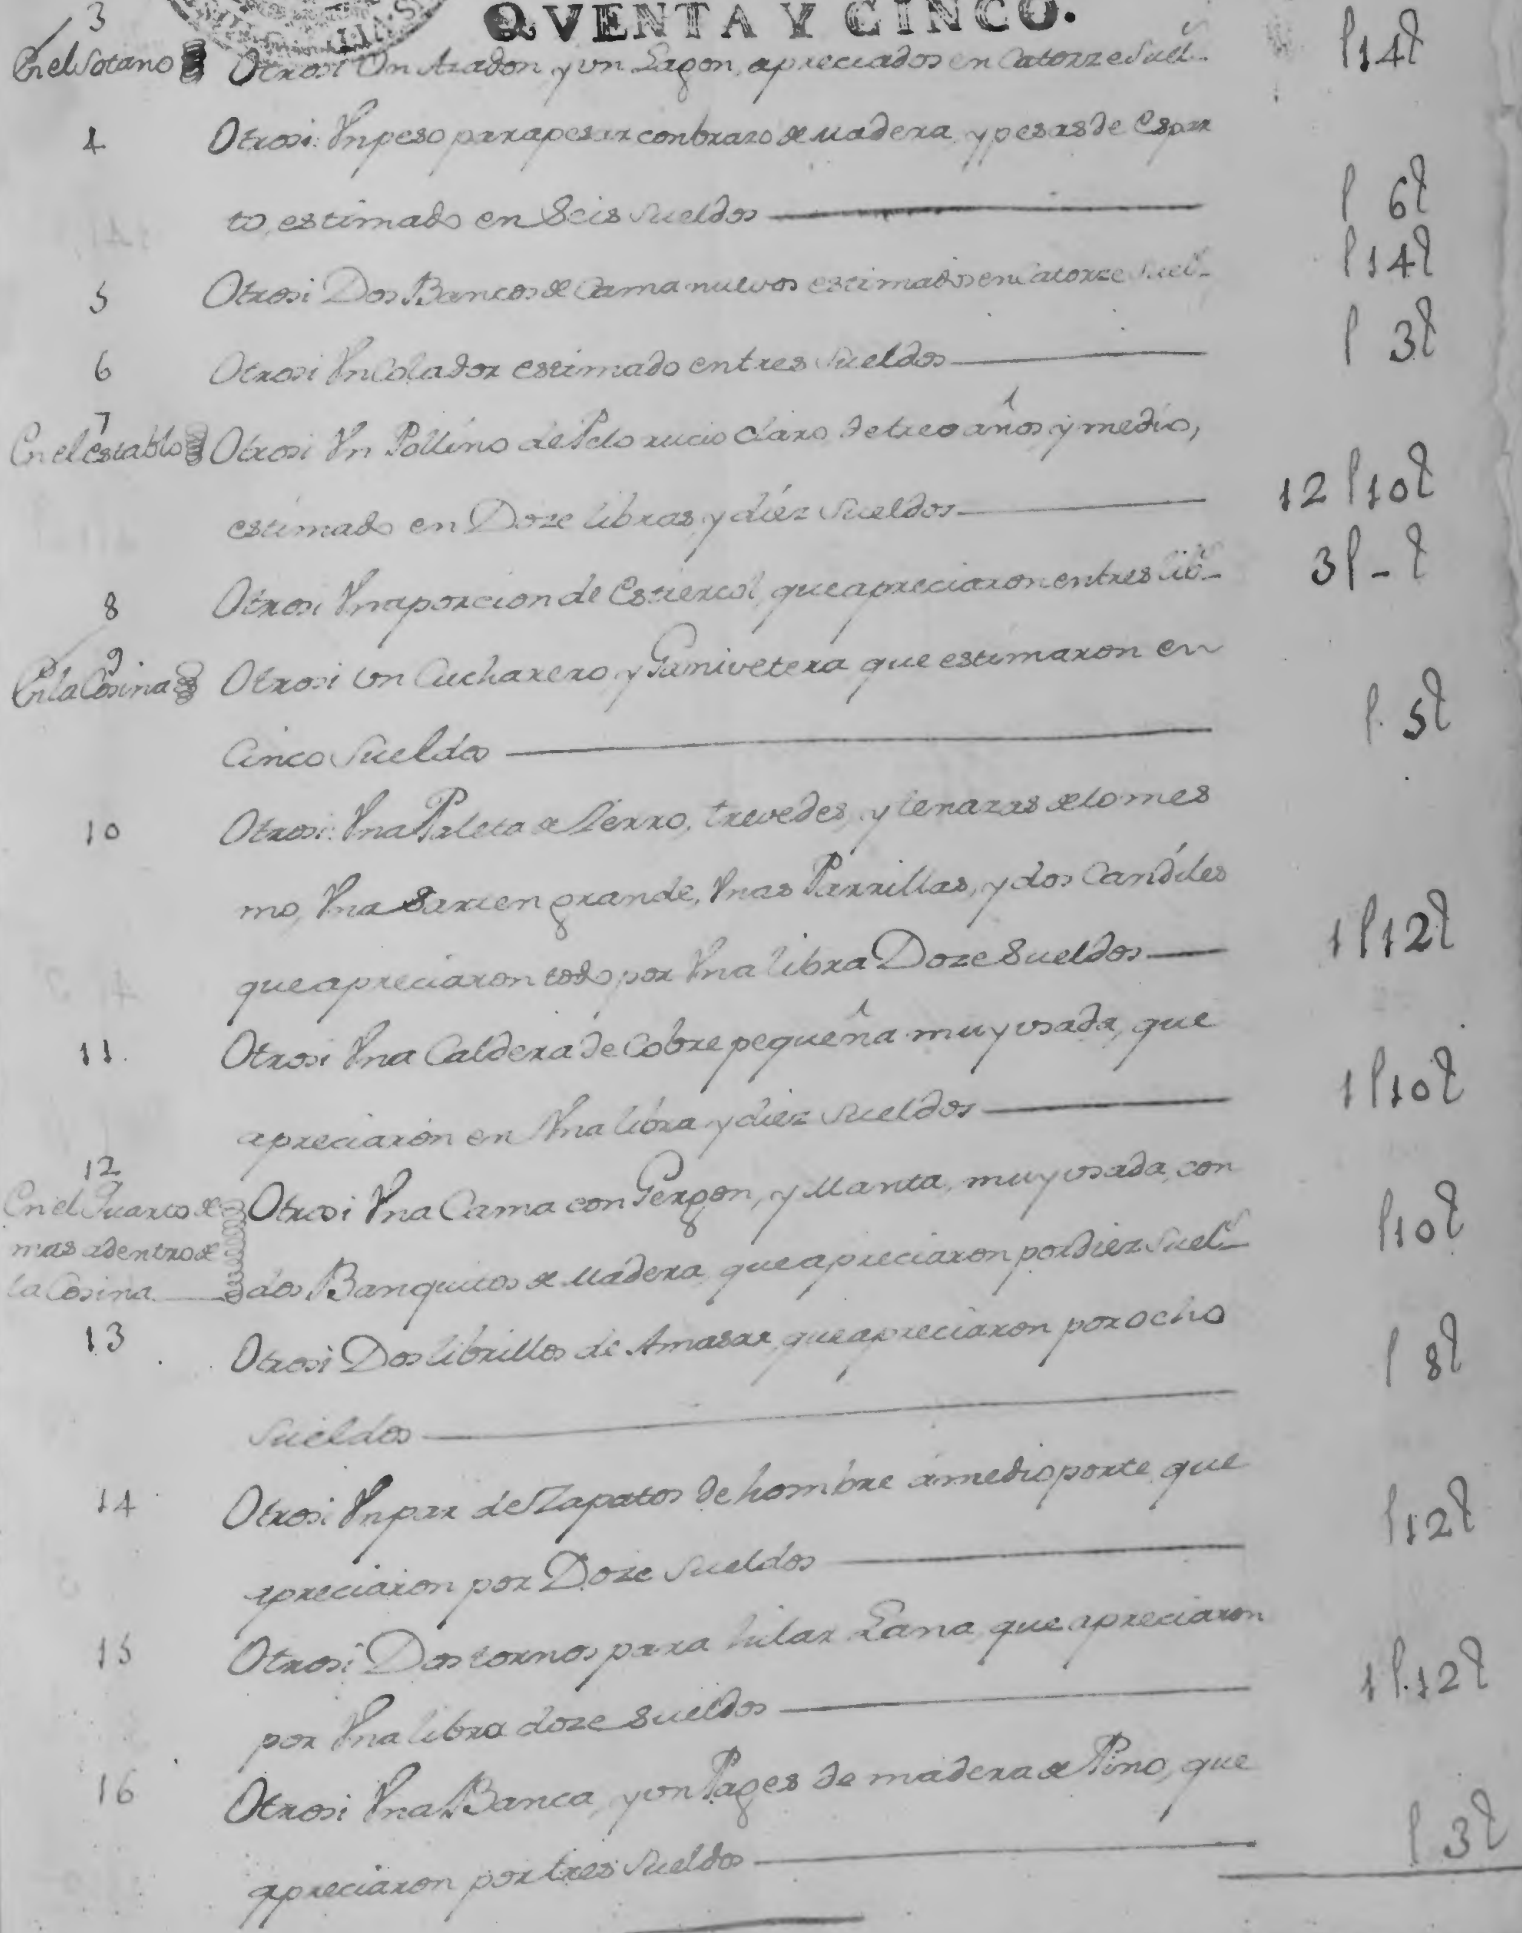 QVENTA Y CINCO.
3
En el Sotano Otrosi Un Azadon, y vn Lagon, apreciados en Catorze Suel.s l14S
4 Otrosi Vn peso para pesar con brazo de Madera, y pesas de Espar
to, estimado en Seis Sueldos l 6S
5 Otrosi Dos Bancos de Cama nuevos estimados en Catorze Suel.s l14S
6 Otrosi Vn Colador estimado en tres Sueldos l 3S
7
En el establo Otrosi Vn Pollino de Pelo rucio claro de tres años y medio,
estimado en Doze libras, y diéz Sueldos 12 l10S
8 Otrosi Vna porcion de Estiercol, que apreciaron en tres lib.s 3l - S
9
En la Cosina Otrosi vn Cucharero, y Ganivetera que estimaron en
Cinco Sueldos l. 5S
10 Otrosi Vna Paleta de Ierro, trevedes, y tenazas de lo mes
mo, Vna Sarten grande, Vnas Parrillas, y dos Candiles
que apreciaron todo por Vna libra Doze Sueldos 1 l12S
11. Otrosi Vna Caldera de Cobre pequeña muy vsada, que
apreciaron en Vna libra y diez Sueldos 1 l10S
12
En el Quarto de Otrosi Vna Cama con Gergon, y Manta, muy vsada, con
mas adentro de
la Cosina dos Banquitos de Madera, que apreciaron por diez Suel.s l10S
13 Otrosi Dos librillos de Amasar, que apreciaron por ocho
Sueldos l 8S
14 Otrosi Vn par de Zapatos de hombre á medio porte que
apreciaron por Doze Sueldos l12S
15 Otrosi Dos tornos para hilar Lana, que apreciaron
por Vna libra doze Sueldos 1 l.12S
16 Otrosi Vna Banca, y vn Pages de madera de Pino, que
apreciaron por tres Sueldos l 3S